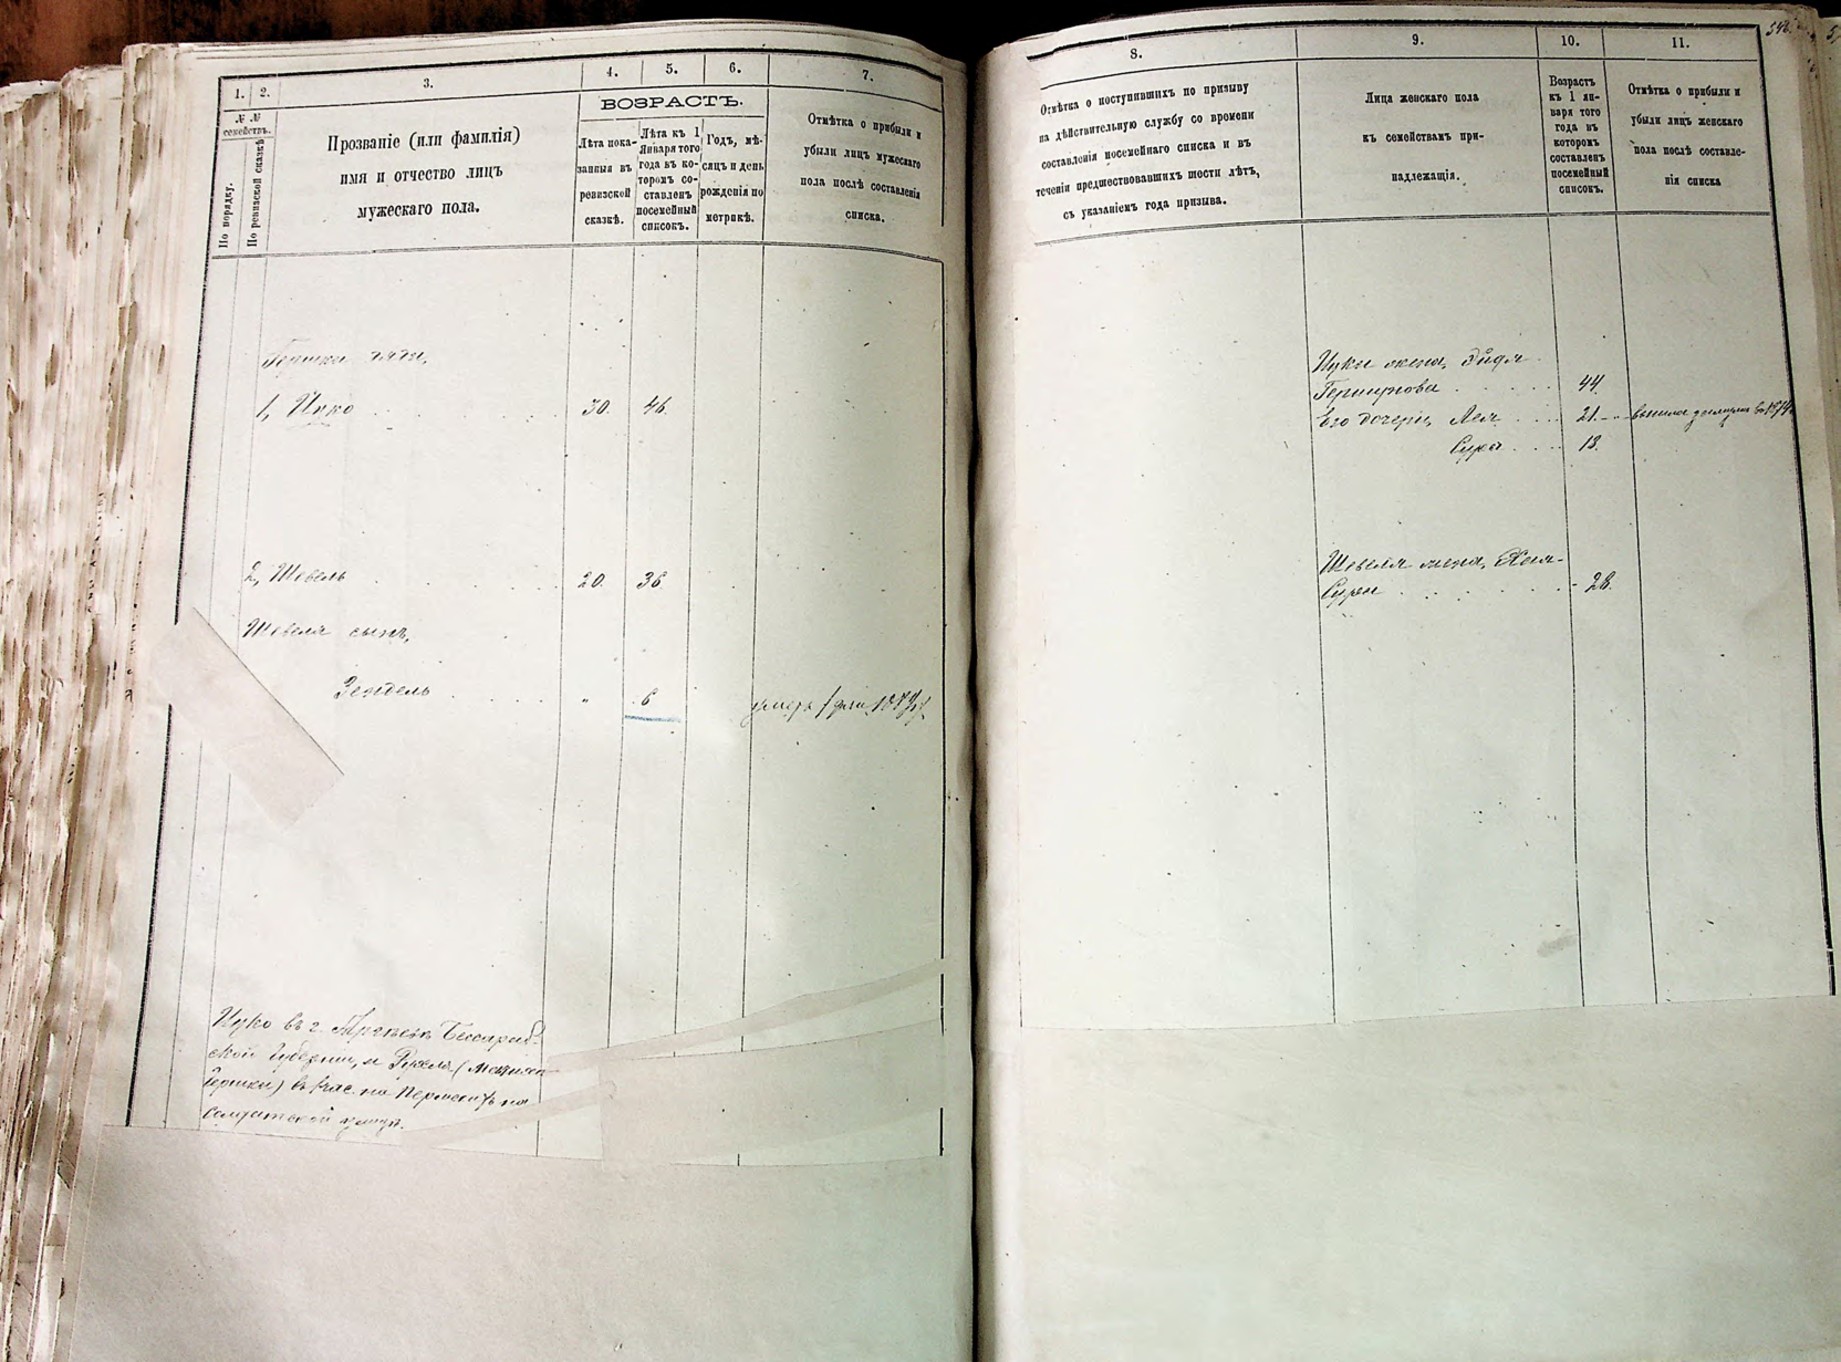 1.
2.
3.
4.
5.
6.
7.
№ №
семействъ.
По порядку.
По ревизской сказкѣ
Прозваніе (или фамилія)
имя и отчество лицъ
мужескаго пола.
ВОЗРАСТЪ.
Лѣта пока-
занныя въ
ревизской
сказкѣ.
Лѣта къ 1
Января того
года въ ко-
торомъ со-
ставленъ
посемейный
списокъ.
Годъ, мѣ-
сяцъ и день
рожденія по
метрикѣ.
Отмѣтка о прибыли и
убыли лицъ мужескаго
пола послѣ составленія
списка.
Гершки дяди,
1, Ицко 30. 46.
2, Шевель 20. 36.
Шевеля сынъ,
Зендель „ 6
умеръ
Ицко въ г. Бессараб-
ской Губерніи, и
Гершки) въ на
Солдатской улиц.
546.
8.
9.
10.
11.
Отмѣтка о поступившихъ по призыву
на дѣйствительную службу со времени
составленія посемейнаго списка и въ
теченіи предшествовавшихъ шести лѣтъ,
съ указаніемъ года призыва.
Лица женскаго пола
къ семействамъ при-
надлежащія.
Возрастъ
къ 1 ян-
варя того
года въ
которомъ
составленъ
посемейный
списокъ.
Отмѣтка о прибыли и
убыли лицъ женскаго
пола послѣ составле-
нія списка
Ицки жена, Эйдля
Гершкова 44
Его дочери, Лея 21. вышла замужъ въ 1874
Сура 13.
Шевеля жена, Хая-
Сура 28.